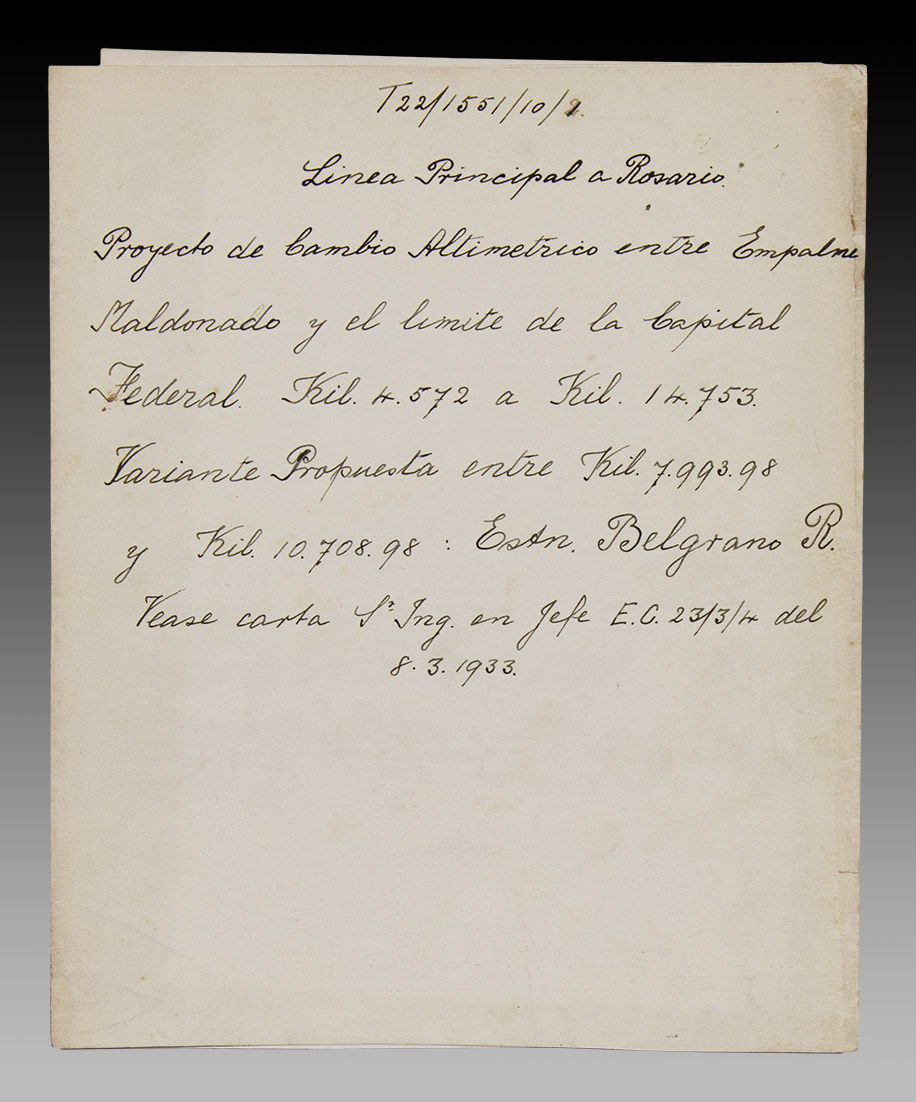 T22/1551/10/1.
Linea Principal a Rosario.
Proyecto de Cambio Altimetrico entre Empalme
Maldonado y el limite de la Capital
Federal. Kil. 4.572 a Kil. 14.753.
Variante Propuesta entre Kil. 7.993.98
y Kil. 10.708.98 : Estn. Belgrano R.
Vease carta Sr. Ing. en Jefe E.C. 23/3/4 del
8.3.1933.